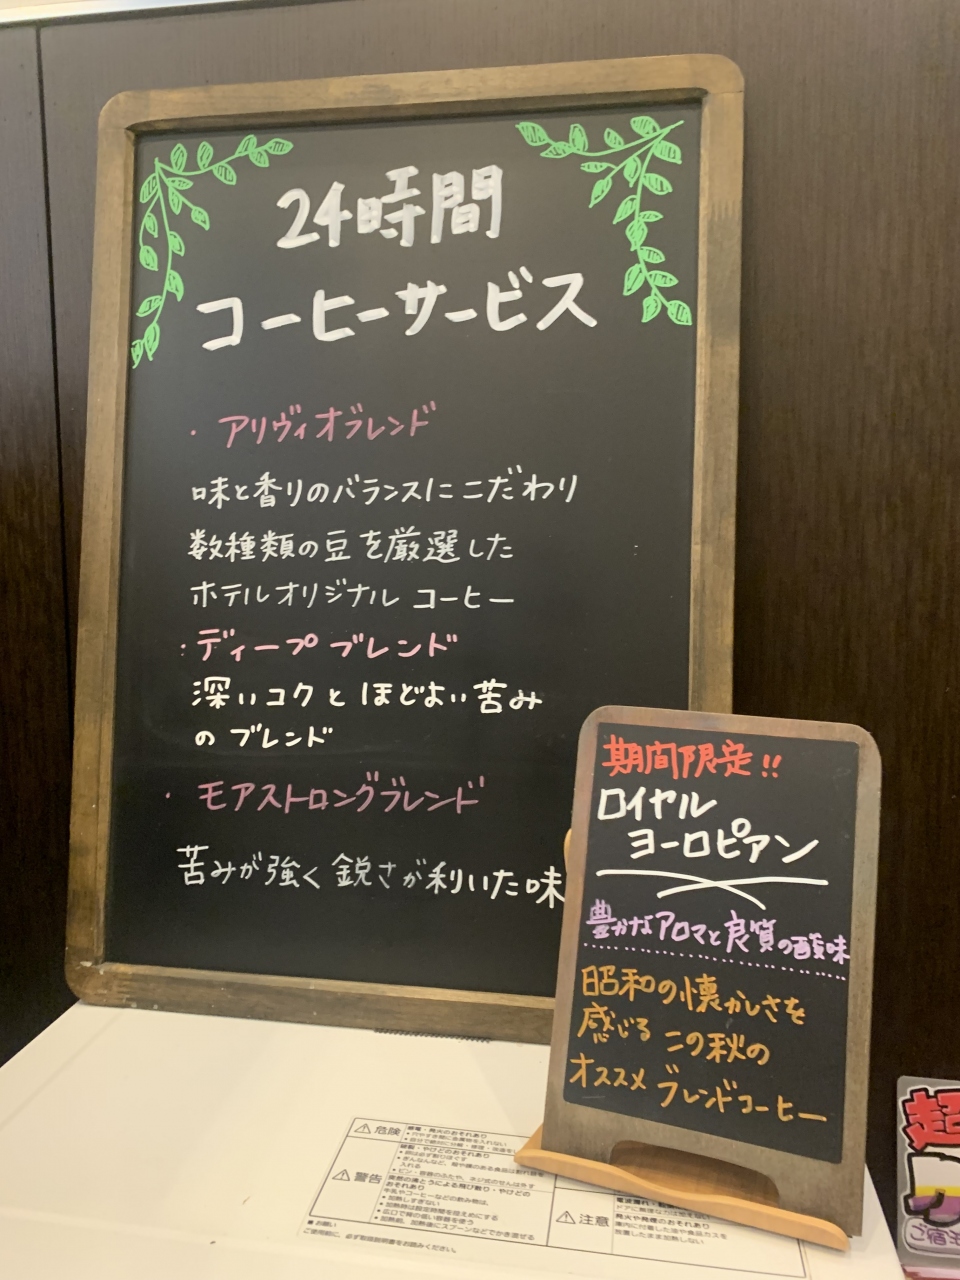 24時間
コーヒーサービス
・アリヴィオブレンド
味と香りのバランスにこだわり
数種類の豆を厳選した
ホテルオリジナル コーヒー
・ディープ ブレンド
深いコクと ほどよい苦み
の ブレンド
・モアストロングブレンド
苦みが強く 鋭さが利いた味
期間限定!!
ロイヤル
ヨーロピアン
豊かなアロマと良質の酸味
昭和の懐かしさを
感じる この秋の
オススメ ブレンドコーヒー
危険
感電・発火のおそれあり
警告
注意
加熱しすぎない
ご使用前に、必ず取扱説明書をお読みください。
超